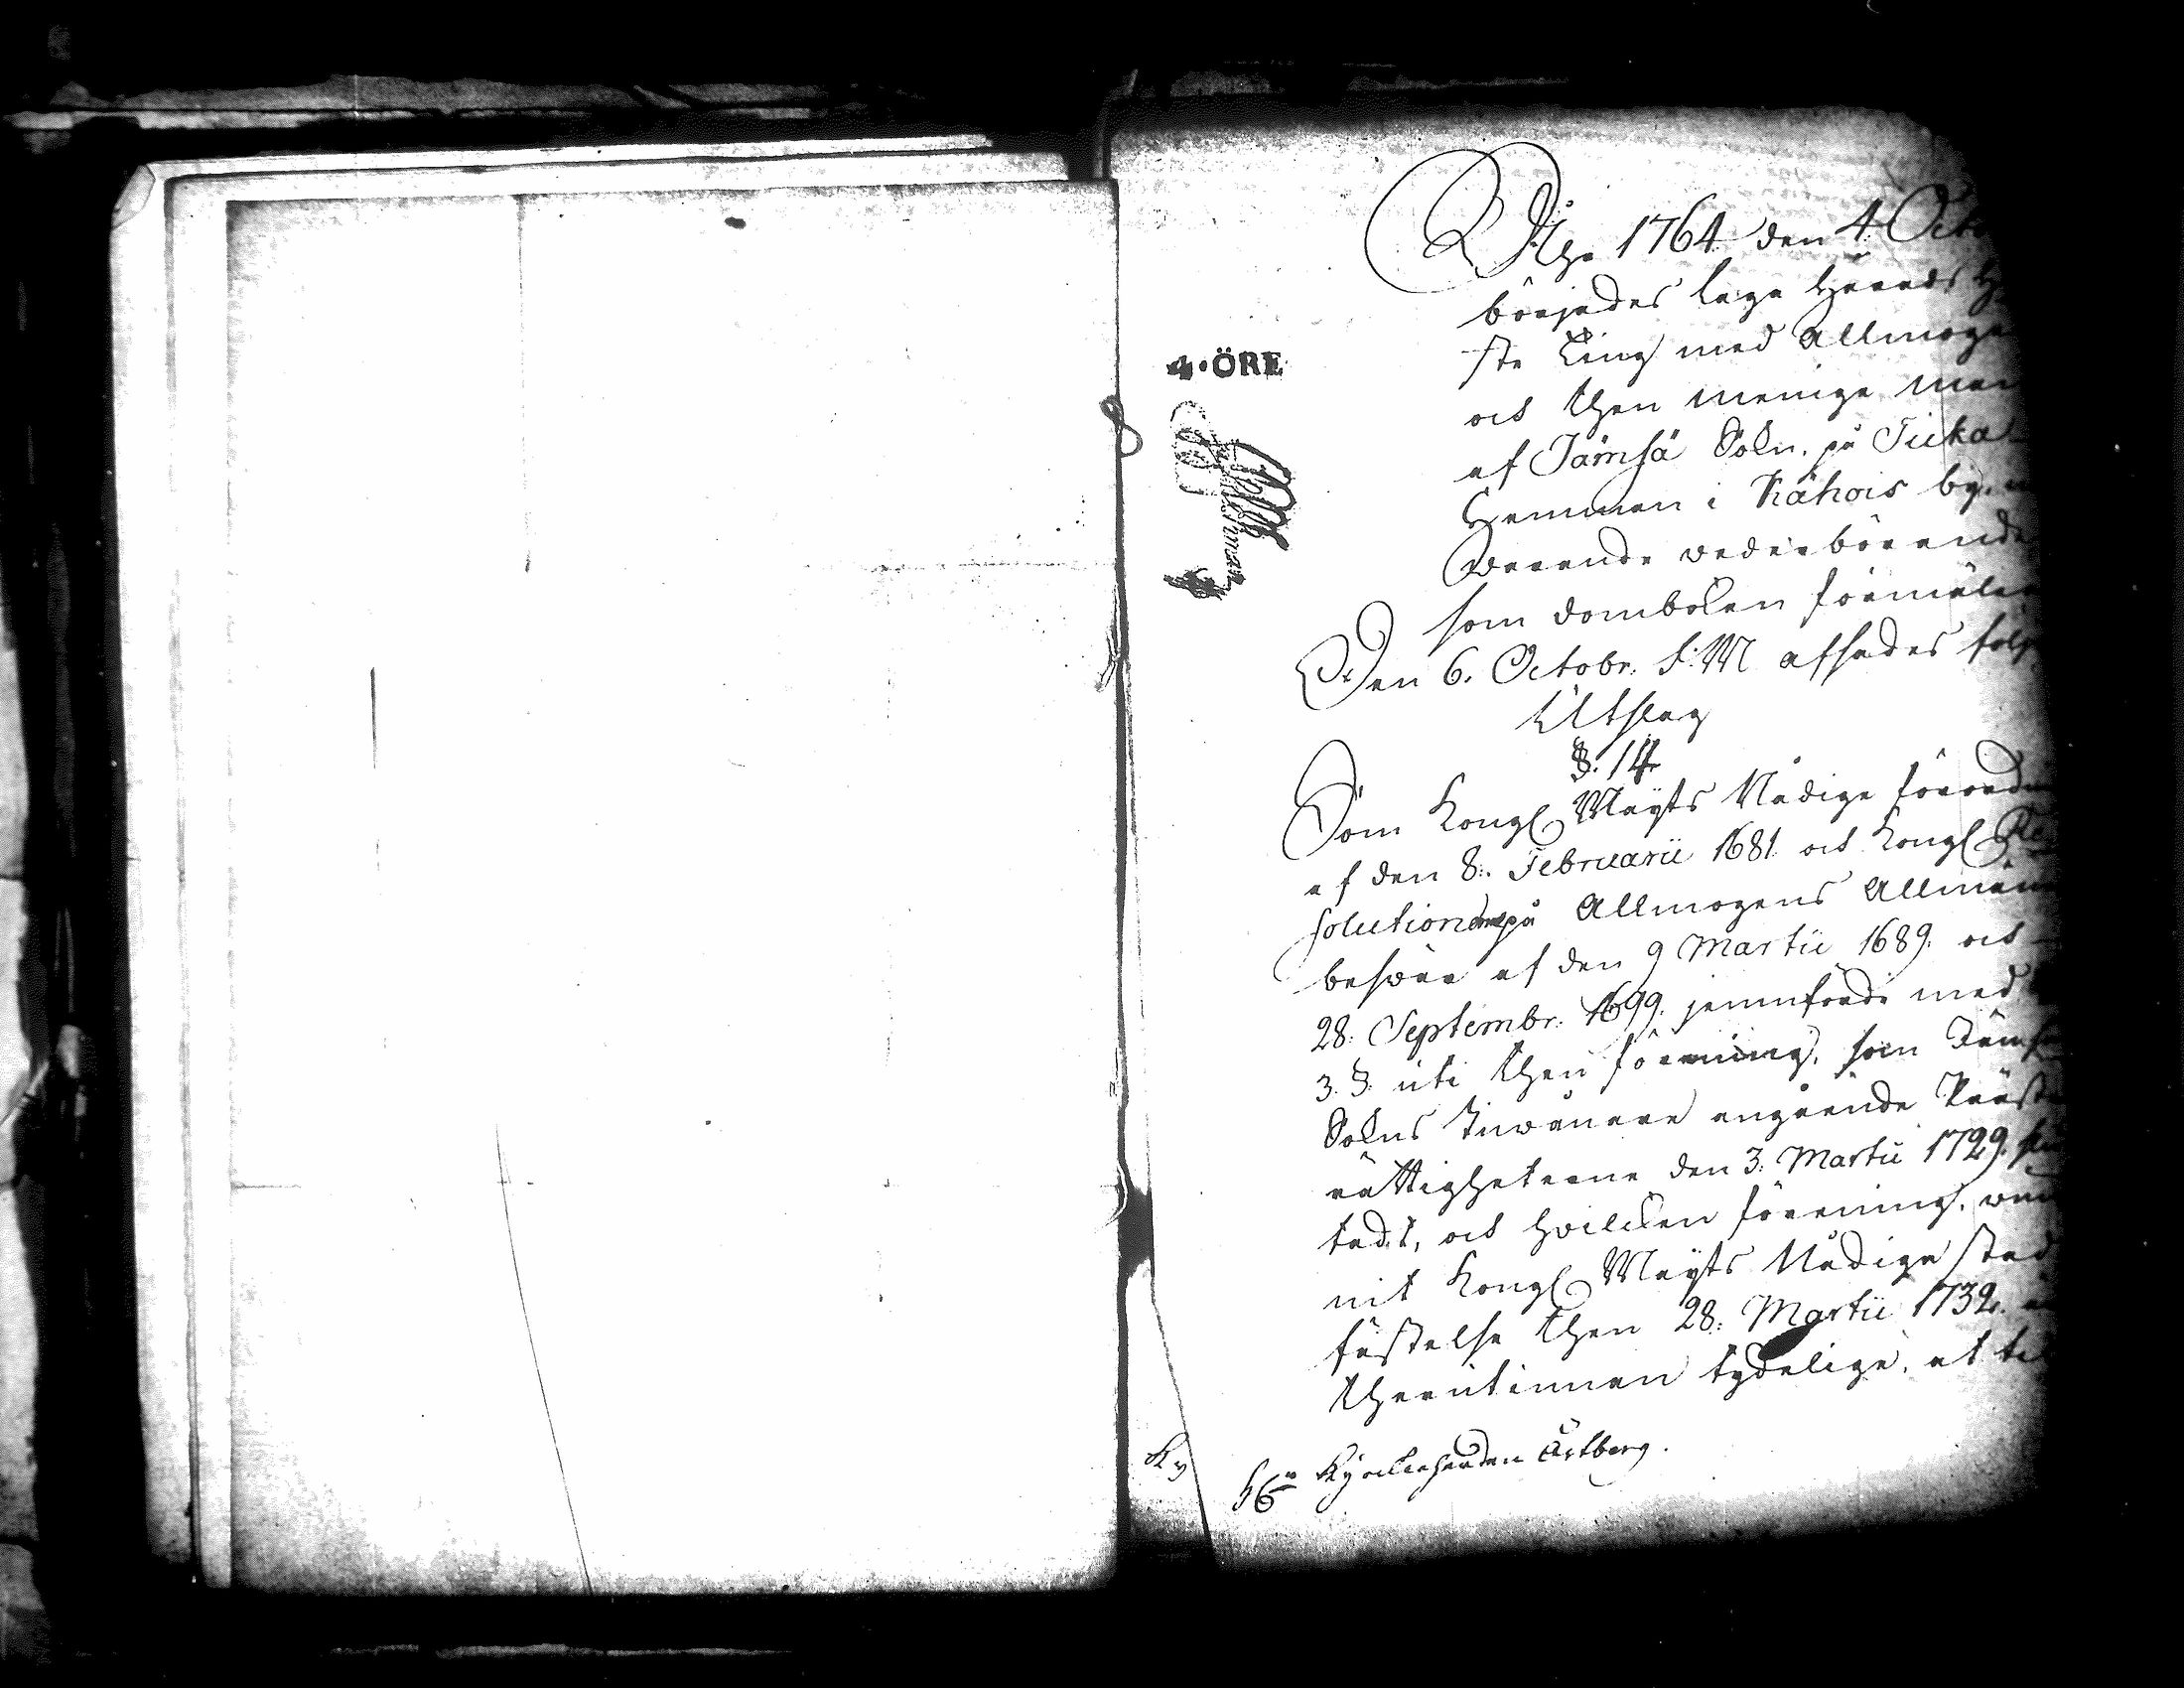 Åhr 1764 den 4 Octo
börjades laga Härads Hö
ste Ting med Allmoge
och then menige man
af Jämsä Sokn, på Juka
Hemman i Kåhois by,
warande wederbörande
som domboken förmäler
Den 6. Octobr. F:M afsades följ
Utslag
§. 14.
4·ÖRE
8
Som Kongl Mayts Nådige förord
af den 8:. Februarii 1681. och Kongl Re
solutionerne på Allmogens Allmän
beswär af den 9 Martii 1689. och
28: Septembr: 1699. jemnförde med
3. §. uti then förening, som Jämsä
Sokns Inwånare angående Präste
rättigheterne den 3: Martii 1729. slu
tadt, och hwilken förening, wun
nit Kongl Mayts Nådiga stad
fästelse then 28: Martii 1732.
therutinnan tydelige, at
Ky
Kyrckioherden Östberg.